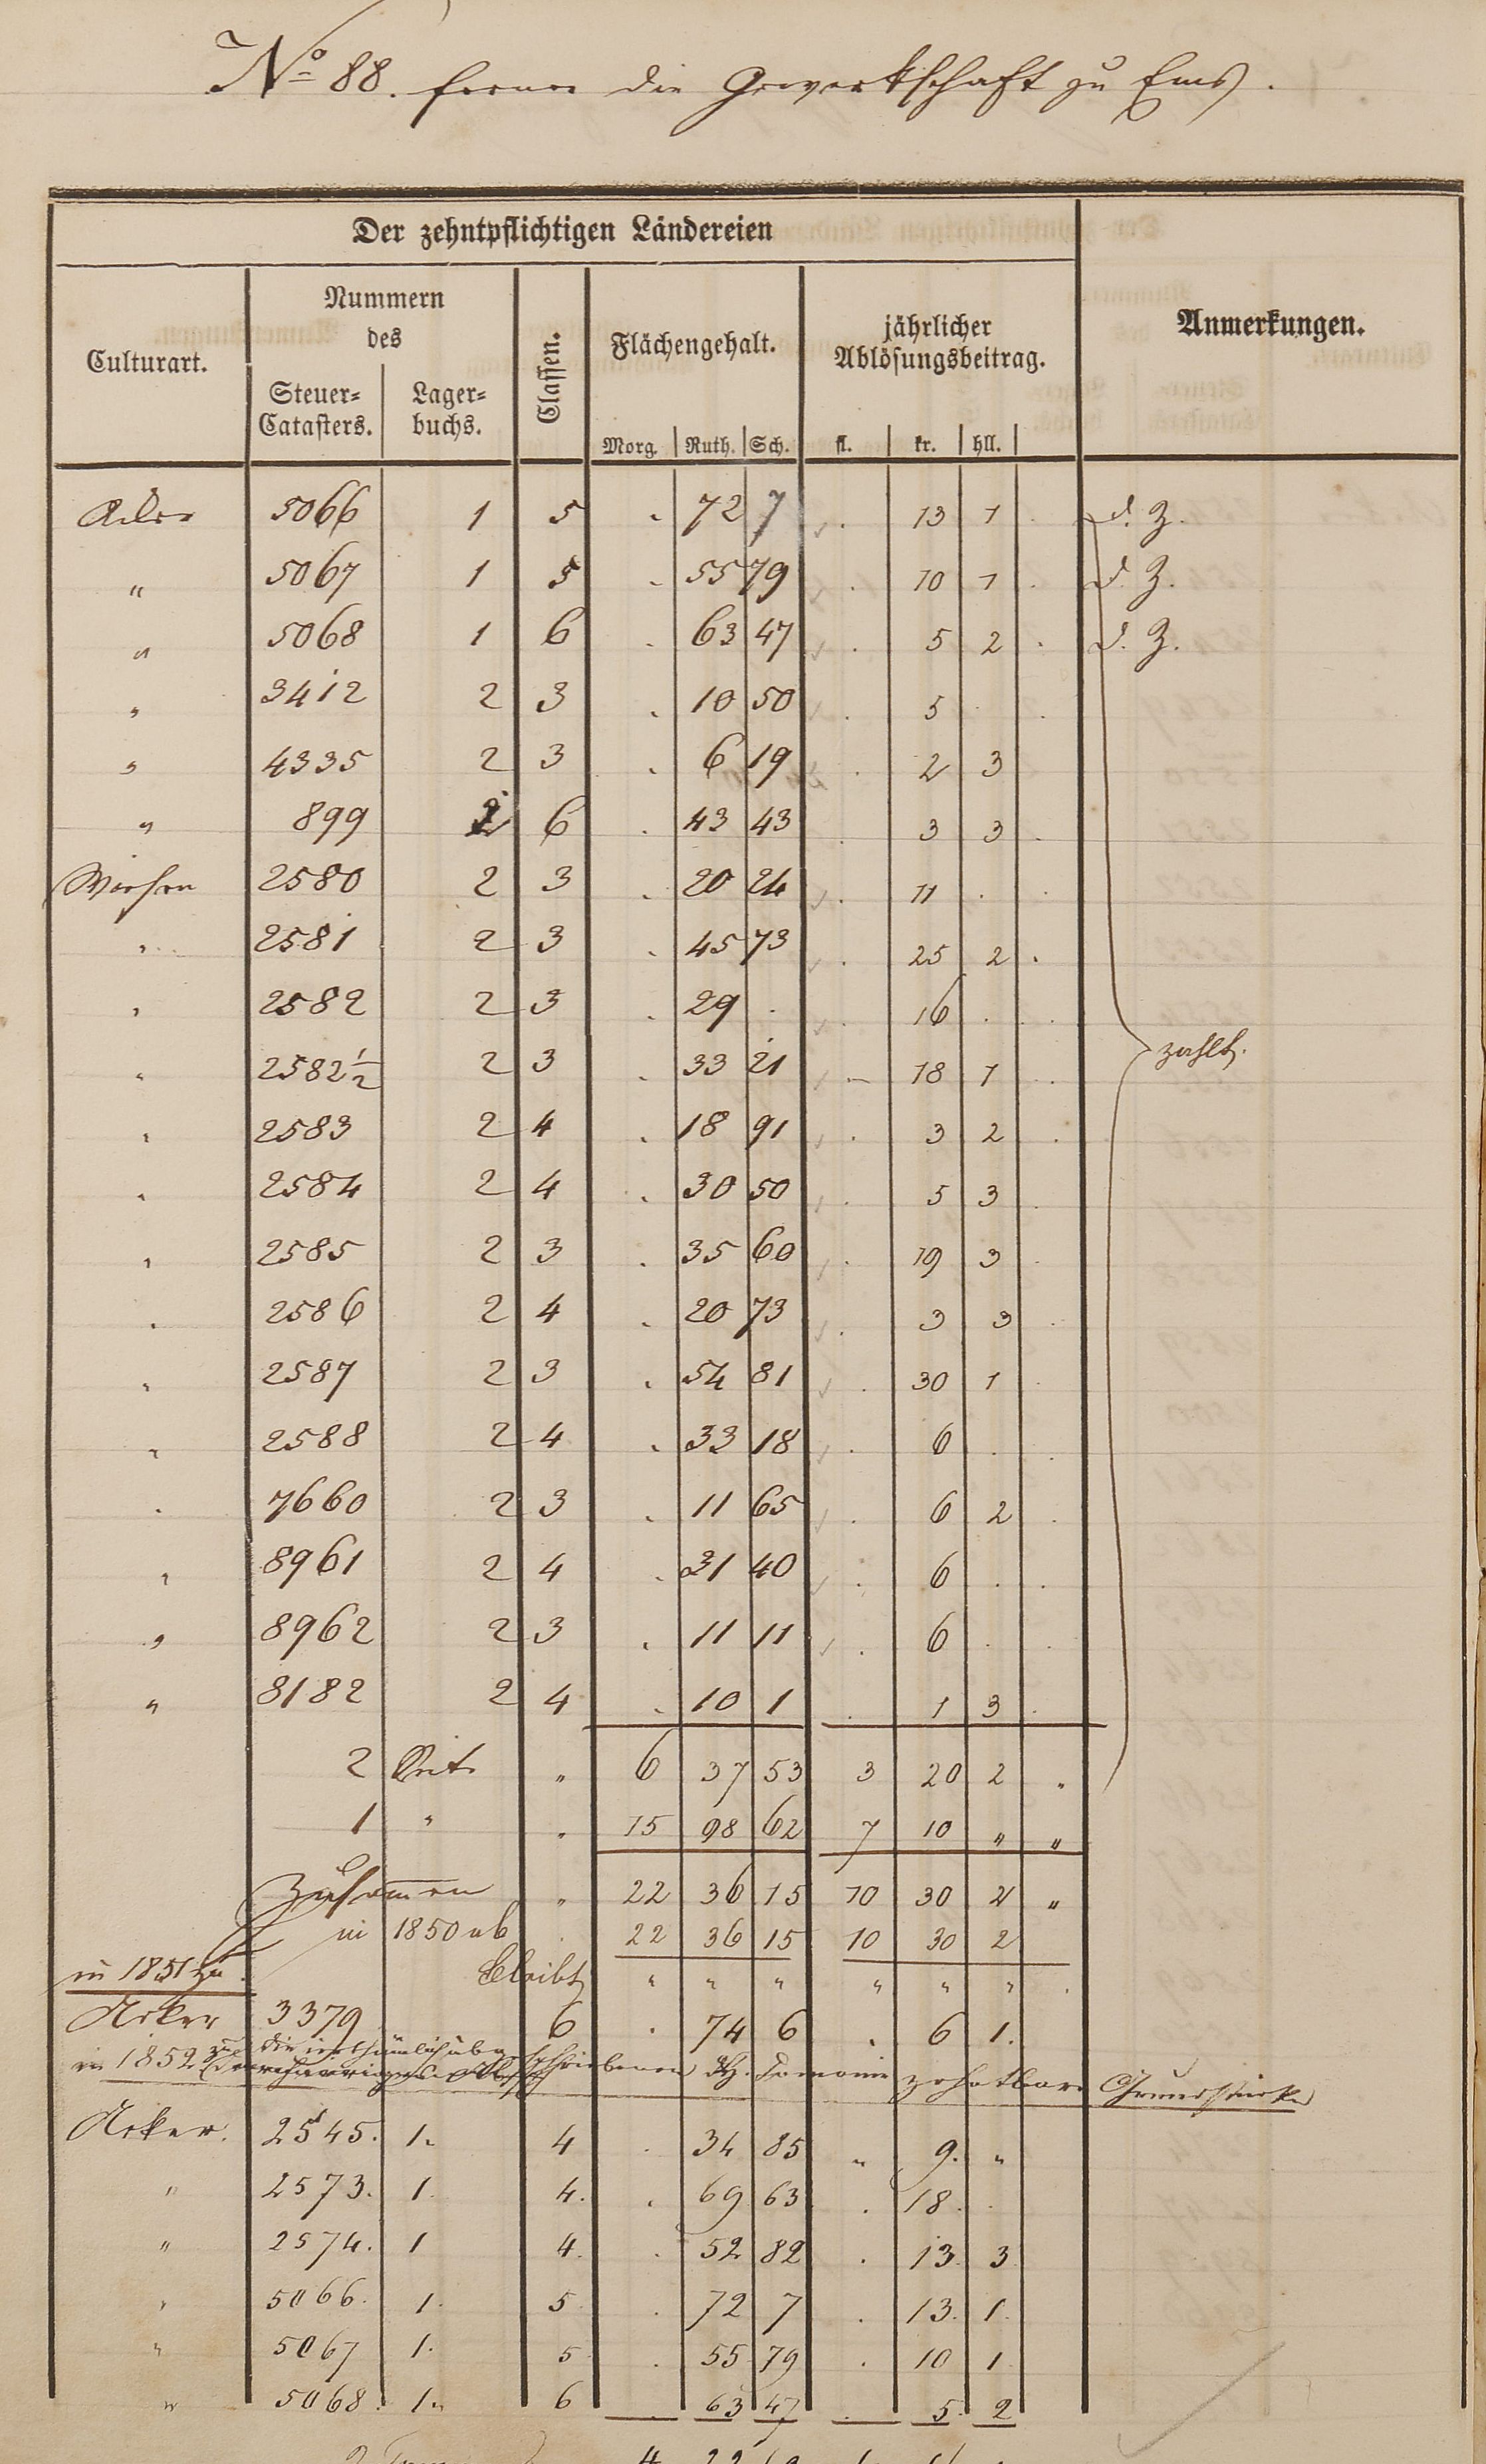 No 88. ferner die Gewerkschaft zu Ems.
Der zehntpflichtigen Ländereien
Culturart. Nummern des Steuer-Catasters. Lagerbuchs. Classen. Flächengehalt. Morg. Ruth. Sch. jährlicher Ablösungsbeitrag. fl. kr. hll. Anmerkungen.
Acker 5066 1 5 . 72 7 . 13 1 . d. Z.
" 5067 1 5 . 55 79 . 10 1 . d. Z.
" 5068 1 6 . 63 47 . 5 2 . d. Z.
" 3412 2 3 . 10 50 . 5 . .
" 4335 2 3 . 6 19 . 2 3
" 899 2 6 . 43 43 . 3 3 .
Wiesen 2580 2 3 . 20 24 . 11 . .
" 2581 2 3 . 45 73 . 25 2 .
" 2582 2 3 . 29 . . 16 . .
" 2582 1/2 2 3 . 33 21 - 18 1 . zahlt.
" 2583 2 4 . 18 91 . 3 2 .
" 2584 2 4 . 30 50 . 5 3 .
" 2585 2 3 . 35 60 . 19 3 .
" 2586 2 4 . 20 73 . 3 3 .
" 2587 2 3 . 54 81 . 30 1 .
" 2588 2 4 . 33 18 . 6 . .
" 7660 2 3 . 11 65 . 6 2 .
" 8961 2 4 . 31 40 . 6 . .
" 8962 2 3 . 11 11 . 6 . .
" 8182 2 4 . 10 1 . 1 3 .
2 Seite " 6 37 53 3 20 2 "
1 " " 15 98 62 7 10 " "
Zusammen " 22 36 15 10 30 2 "
in 1850 ab . 22 36 15 10 30 2
bleibt " " " " " " .
in 1851 zu.
Acker 3379 6 . 74 6 . 6 1.
in 1852 zu die irrthümlich überschriebenen Hz. Domainen zehntbare Grundstücke
Acker. 2545. 1. 4 . 34 85 " 9. "
" 2573. 1. 4. . 69 63 . 18. .
" 2574. 1 4. . 52 82 . 13. 3
" 5066. 1. 5 . 72 7 . 13. 1.
" 5067 1. 5 . 55 79 . 10 1
" 5068. 1. 6 . 63 47 . 5. 2